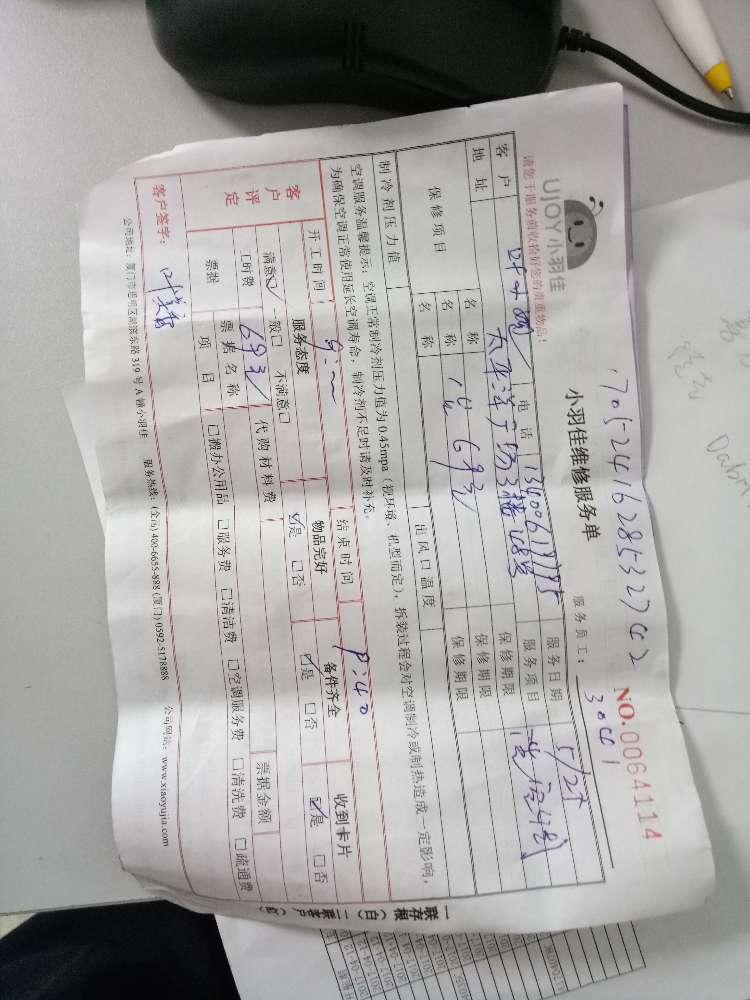 1705241628532742
UJOY小羽佳
请您于服务前收检好您的贵重物品!
小羽佳维修服务单
NO.0064114
服务员工: 3041
客户 电话 服务日期 5/25
地址 太平洋广场3楼 服务项目
保修项目 名称 69元 保修期限
名称 保修期限
制冷剂压力值 出风口温度 保修期限
空调服务温馨提示:空调正常制冷剂压力值为0.45mpa(视环境、机型而定),拆装过程会对空调制冷或制热造成一定影响,
为确保空调正常使用延长空调寿命,制冷剂不足时请及时补充。
开工时间: 结束时间 9:40
客户评定 服务态度 物品完好 备件齐全 收到卡片
满意☑ 一般□ 不满意□ ☑是 □否 ☑是 □否 ☑是 □否
工时费 69元 代购材料费 票据金额
票据 票据名称
项目 □搬办公用品 □服务费 □清洁费 □空调服务费 □清洗费 □疏通费
客户签字:
公司地址:厦门市思明区前埔东路319号A幢小羽佳 服务热线:(全国)400-6655-888 (厦门)0592-5178888 公司网站:www.xiaoyujia.com
一联存根(白)二联客户(红)